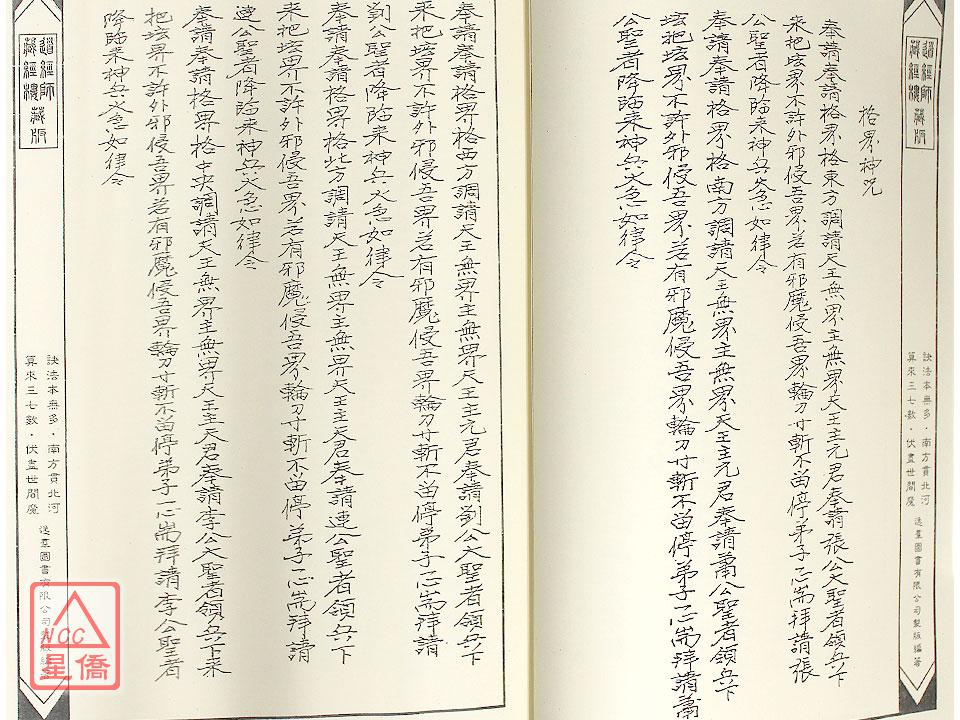 道經師
藏經樓藏版
訣法本無多‧南方貫北河
算來三七數‧伏盡世間魔
逸羣圖書有限公司製版編著
格界神咒
奉請奉請格界格東方調請天王無界主無界天王主元君奉請張公大聖者領兵下
來把垓界不許外邪侵吾界若有邪魔侵吾界輪刀寸斬不留停弟子一心崙拜請張
公聖者降臨来神兵火急如律令
奉請奉請格界格南方調請天王無界主無界天王主元君奉請蕭公聖者領兵下
垓把垓界不許外邪侵吾界若有邪魔侵吾界輪刀寸斬不留停弟子一心崙拜請蕭
公聖者降臨来神兵火急如律令
奉請奉請格界格西方調請天王無界主無界天王主元君奉請劉公大聖者領兵下
来把垓界不許外邪侵吾界若有邪魔侵吾界輪刀寸斬不留停弟子一心崙拜請
劉公聖者降臨来神兵火急如律令
奉請奉請格界格北方調請天王無界主無界天王主天君奉請連公聖者領兵下
来把垓界不許外邪侵吾界若有邪魔侵吾界輪刀寸斬不留停弟子一心崙拜請
連公聖者降臨来神兵火急如律令
奉請奉請格界格中央調請天王無界主無界天王主天君奉請李公大聖者領兵下来
把垓界不許外邪侵吾界若有邪魔侵吾界輪刀寸斬不留停弟子一心崙拜請李公聖者
降臨来神兵火急如律令
道經師
藏經樓藏版
訣法本無多‧南方貫北河
算來三七數‧伏盡世間魔
逸羣圖書有限公司製版編著
ICC
星僑